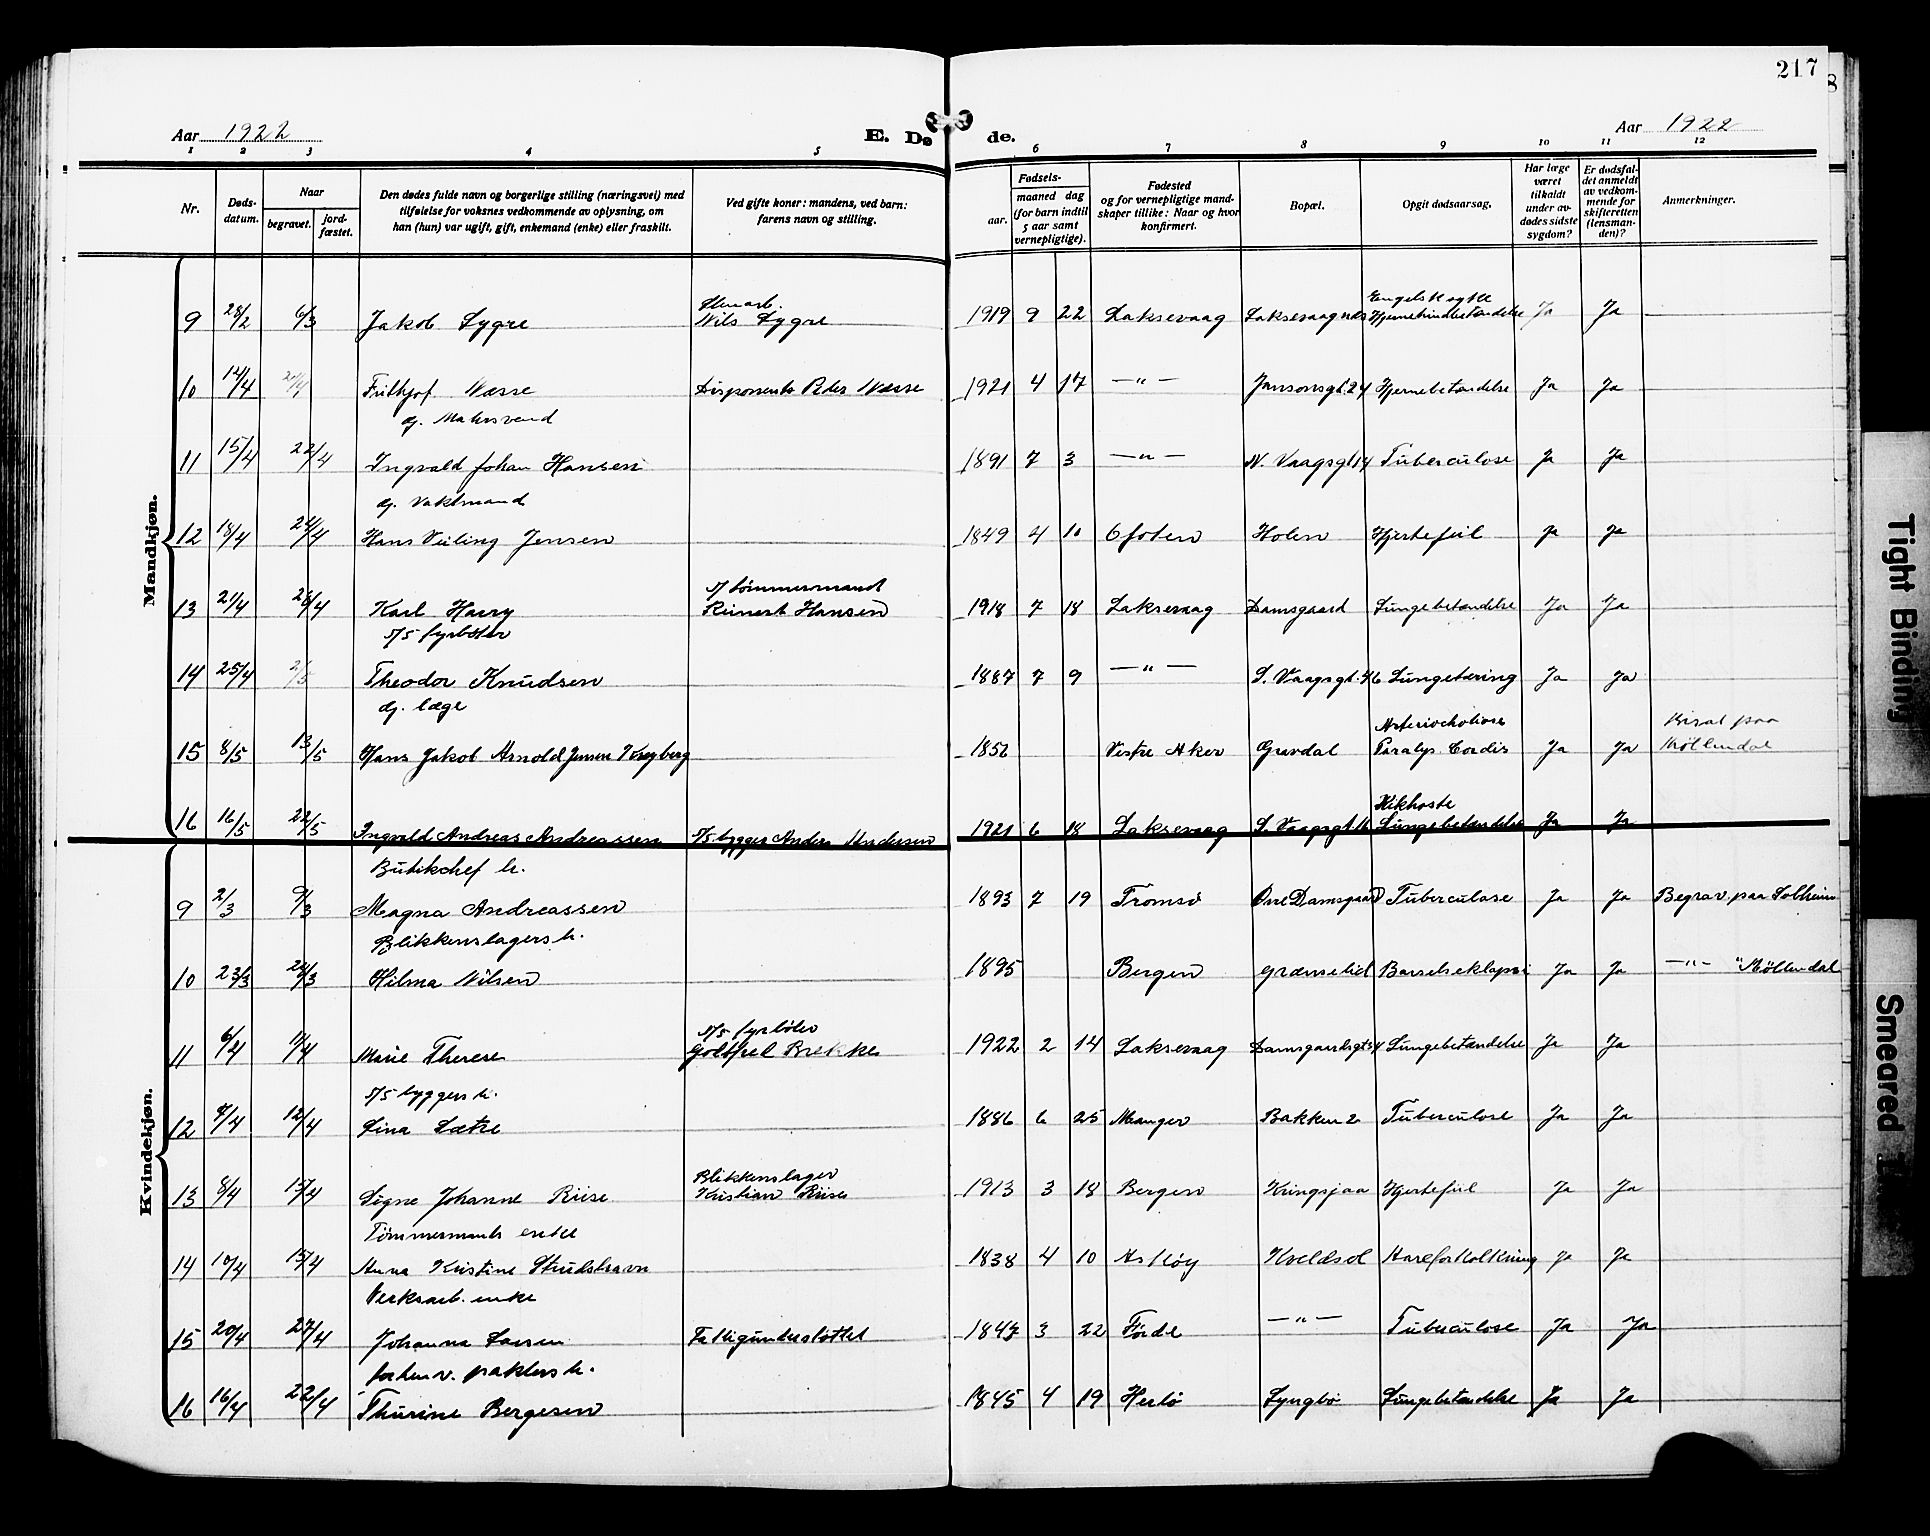 217
Aar 1922 E. Dø de. Aar 1922
1 2 3 4 5 6 7 8 9 10 11 12
Nr.
Døds-
datum.
Naar
begravet.
jord-
fæstet.
Den dødes fulde navn og borgerlige stilling (næringsvei) med
tilføielse for voksnes vedkommende av oplysning, om
han (hun) var ugift, gift, enkemand (enke) eller fraskilt.
Ved gifte koner: mandens, ved barn:
farens navn og stilling.
Fødsels-
aar.
maaned dag
(for barn indtil
5 aar samt
vernepligtige).
Fødested
og for vernepligtige mand-
skaper tillike: Naar og hvor
konfirmert.
Bopæl.
Opgit dødsaarsag.
Har læge
været
tilkaldt
under av-
dødes sidste
sygdom?
Er dødsfal-
det anmeldt
av vedkom-
mende for
skifteretten
(lensman-
den)?
Anmerkninger.
Mandkjøn.
Stenarb. Engelsk syke
9 28/2 6/3 Jakob Sygre Nils Sygre 1919 9 22 Laksevaag Laksevaagnes Hjernehindebetændelse Ja Ja
10 14/4 Frithjof Næsse Disponent Peder Næsse 1921 4 17 —"— Jansonsgt. 24 Hjernebetændelse Ja Ja
g. Matrosvend
11 15/4 22/4 Ingvald Johan Hansen 1891 7 3 —"— N. Vaagsgt 14 Tuberculose Ja Ja
g. Vaktmand
12 18/4 24/4 Hans Veiling Jensen 1849 4 10 Ofoten Holen Hjertefeil Ja Ja
s/ tømmermand
13 21/4 26/4 Karl Harry Reinert Hansen 1918 7 18 Laksevaag Damsgaard Lungebetændelse Ja Ja
s/s fyrbøter
14 25/4 2/5 Theodor Knudsen 1887 7 9 —"— S. Vaagsgt. 46 Lungetæring Ja Ja
g. læge Kisat paa
15 8/5 13/5 Hans Jakob Arnold Jensen 1852 Vestre Aker Gravdal Paralys Cordis Ja Ja Møllendal
Kikhoste
16 16/5 22/5 Ingvald Andreas Andreassen s/s bygger Anders Andersen 1921 6 18 Laksevaag S. Vaagsgt 16 Lungebetændelse Ja Ja
Kvindekjøn.
Butikchef h.
9 2/3 9/3 Magna Andreassen 1893 7 19 Tromsø Øvre Damsgaard Tuberculose Ja Ja Begrav. paa Solheim
Blikkenslagers h.
10 23/3 28/3 Hilma Nilsen 1895 Bergen Grænselid Barselseklampsi Ja Ja —"— " Møllendal
s/s fyrbøter
11 6/4 11/4 Marie Therese Gottfred Brekke 1922 2 14 Laksevaag Damsgaardsgt 54 Lungebetændelse Ja Ja
s/s byggers h.
12 8/4 12/4 Lina Sætre 1886 6 25 Manger Bakken 2 Tuberculose Ja Ja
Blikkenslager
13 8/4 15/4 Signe Johanne Riise Kristian Riise 1913 3 18 Bergen Kringsjaa Hjertefeil Ja Ja
Tømmermands enke
14 10/4 15/4 Anna Kristine Strudshavn 1838 4 10 Askøy Kveldsol Aareforkalkning Ja Ja
Verksarb. enke
15 20/4 27/4 Johanna Larsen Fattigunderstøttet 1847 3 22 Førde —"— Tuberculose Ja Ja
forhenv. pakters h.
16 16/4 22/4 Thurine Bergesen 1845 4 19 Herlø Lyngbø Lungebetændelse Ja Ja
Tight Binding
Smeared